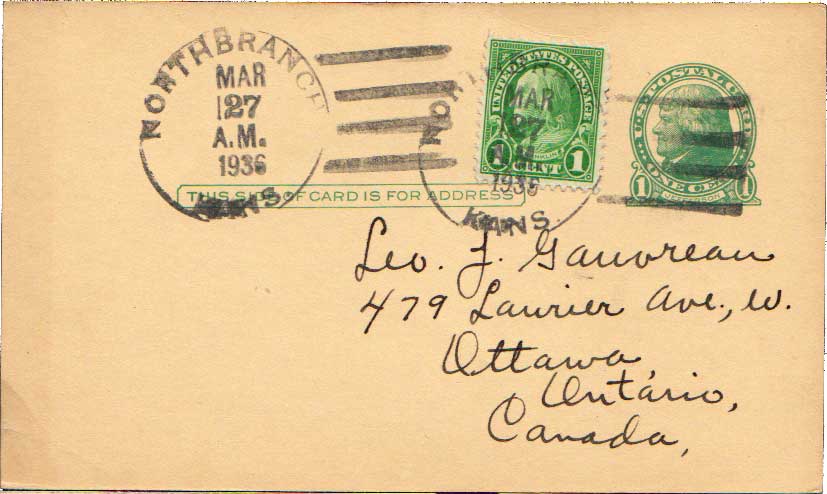 NORTHBRANCH
MAR
27
A.M.
1936
KANS.
UNITED STATES POSTAGE
FRANKLIN
1 CENT 1
MAR
27
A.M.
1936
KANS.
U.S. POSTAL CARD
1 ONE CENT 1
JEFFERSON
THIS SIDE OF CARD IS FOR ADDRESS
Leo. J. Gauvreau
479 Laurier Ave., W.
Ottawa
Ontario,
Canada,